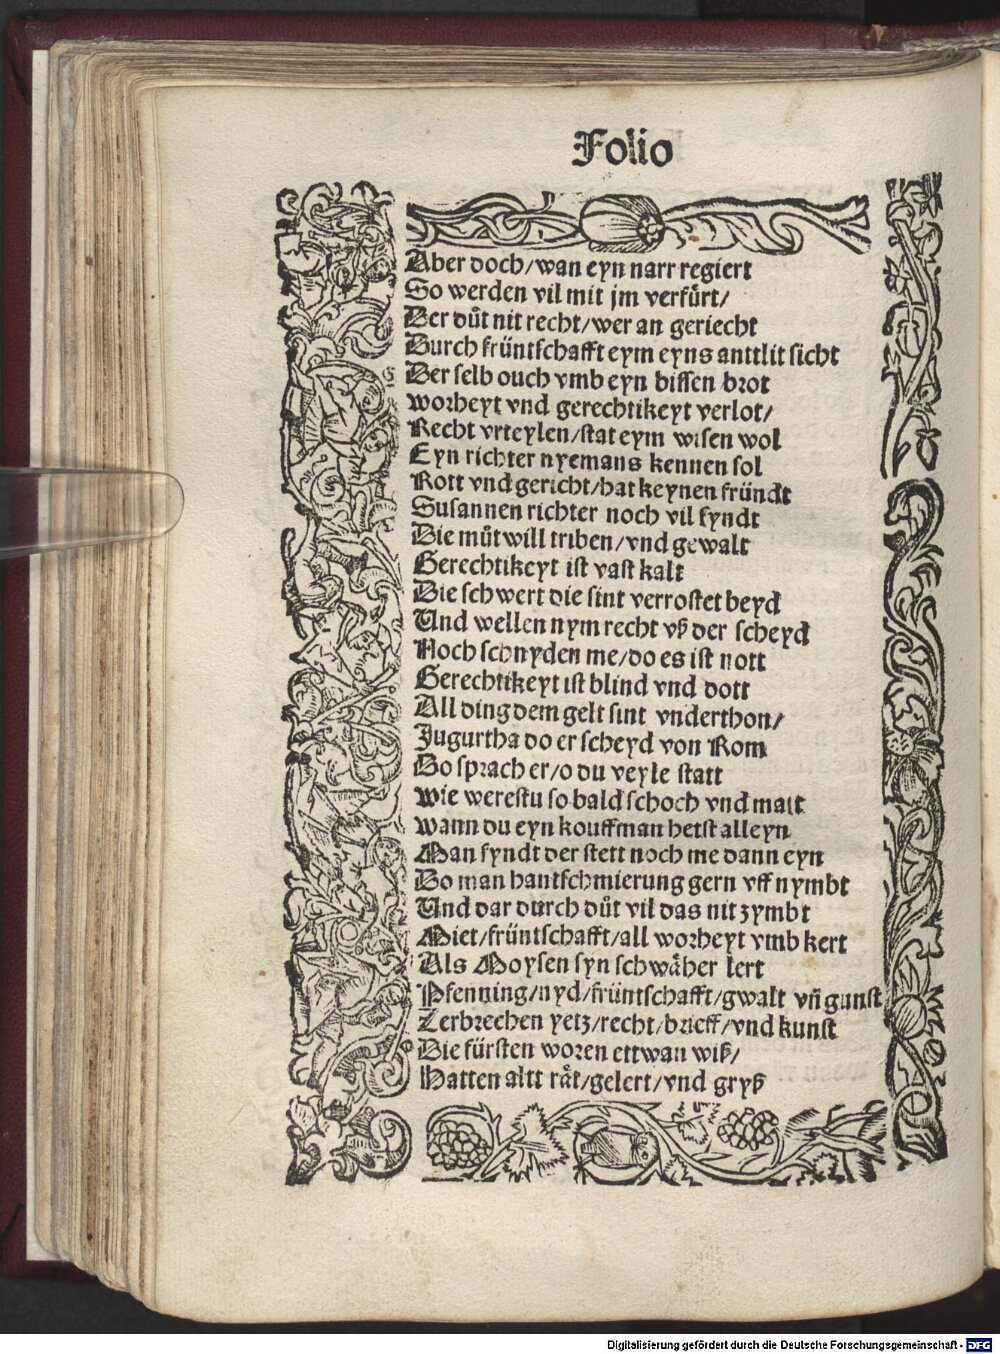 Folio
Aber doch/wan eyn narr regiert
So werden vil mit jm verfürt/
Der důt nit recht/wer an geriecht
Durch früntschafft eym eyns anttlit sicht
Der selb ouch vmb eyn bissen brot
worheyt vnd gerechtikeyt verlot/
Recht vrteylen/stat eym wisen wol
Eyn richter nyemans kennen sol
Rott vnd gericht/hat keynen fründt
Susannen richter noch vil fyndt
Die můtwill triben/vnd gewalt
Gerechtikeyt ist vast kalt
Die schwert die sint verrostet beyd
Und wellen nym recht vß der scheyd
Noch schnyden me/do es ist nott
Gerechtikeyt ist blind vnd dott
All ding dem gelt sint vnderthon/
Jugurtha do er scheyd von Rom
Do sprach er/o du veyle statt
Wie werestu so bald schoch vnd matt
wann du eyn kouffman hetst alleyn
Man fyndt der stett noch me dann eyn
Do man hantschmierung gern vff nymbt
Und dar durch důt vil das nit zymbt
Miet/früntschafft/all worheyt vmb kert
Als Moysen syn schwäher lert
Pfenning/nyd/früntschafft/gwalt vn̄ gunst
Zerbrechen yetz/recht/brieff/vnd kunst
Die fürsten woren ettwan wiß/
Hatten altt rät/gelert/vnd gryß
Digitalisierung gefördert durch die Deutsche Forschungsgemeinschaft - DFG